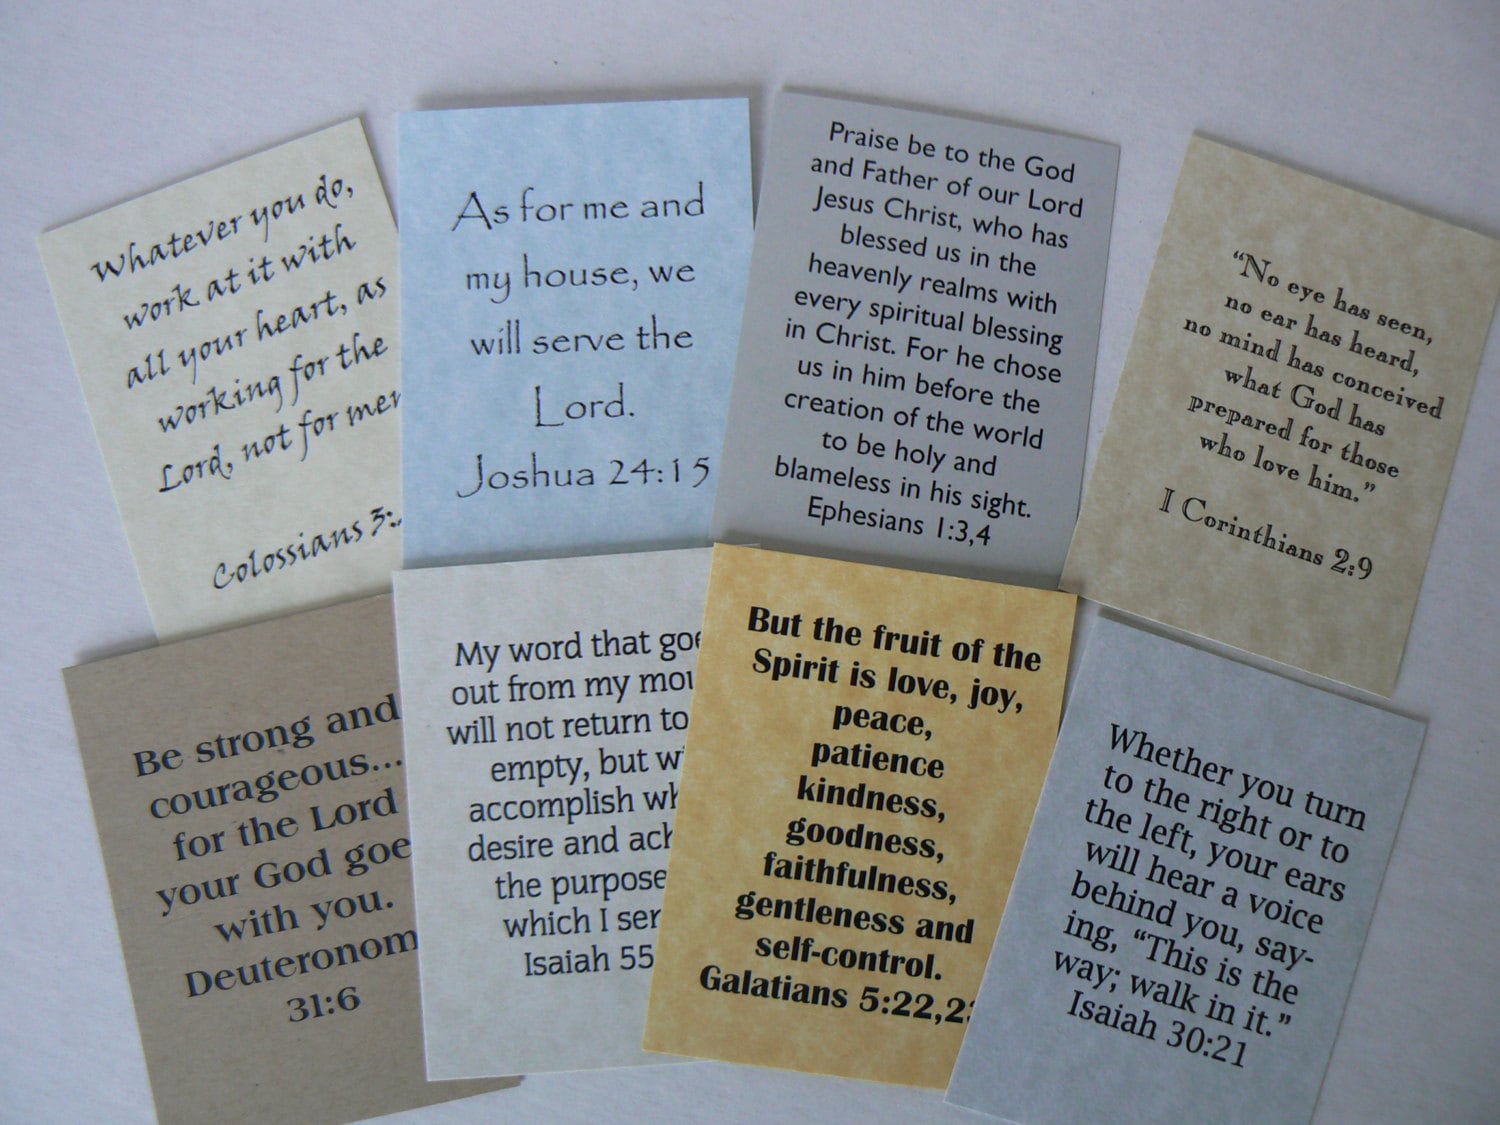 Whatever you do,
work at it with
all your heart, as
working for the
Lord, not for men
Colossians 3:
As for me and
my house, we
will serve the
Lord.
Joshua 24:15
Praise be to the God
and Father of our Lord
Jesus Christ, who has
blessed us in the
heavenly realms with
every spiritual blessing
in Christ. For he chose
us in him before the
creation of the world
to be holy and
blameless in his sight.
Ephesians 1:3,4
“No eye has seen,
no ear has heard,
no mind has conceived
what God has
prepared for those
who love him.”
I Corinthians 2:9
Be strong and
courageous...
for the Lord
your God goe
with you.
Deuteronom
31:6
My word that goe
out from my mou
will not return to
empty, but wi
accomplish wh
desire and ach
the purpose
which I sen
Isaiah 55
But the fruit of the
Spirit is love, joy,
peace,
patience
kindness,
goodness,
faithfulness,
gentleness and
self-control.
Galatians 5:22,2
Whether you turn
to the right or to
the left, your ears
will hear a voice
behind you, say-
ing, “This is the
way; walk in it.”
Isaiah 30:21